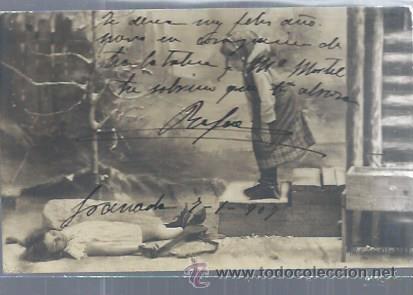 te desea muy feliz año
nuevo en compañia de
tia
tu sobrino que te abraza
Rafael
Granada 7-1-909
www.todocoleccion.net